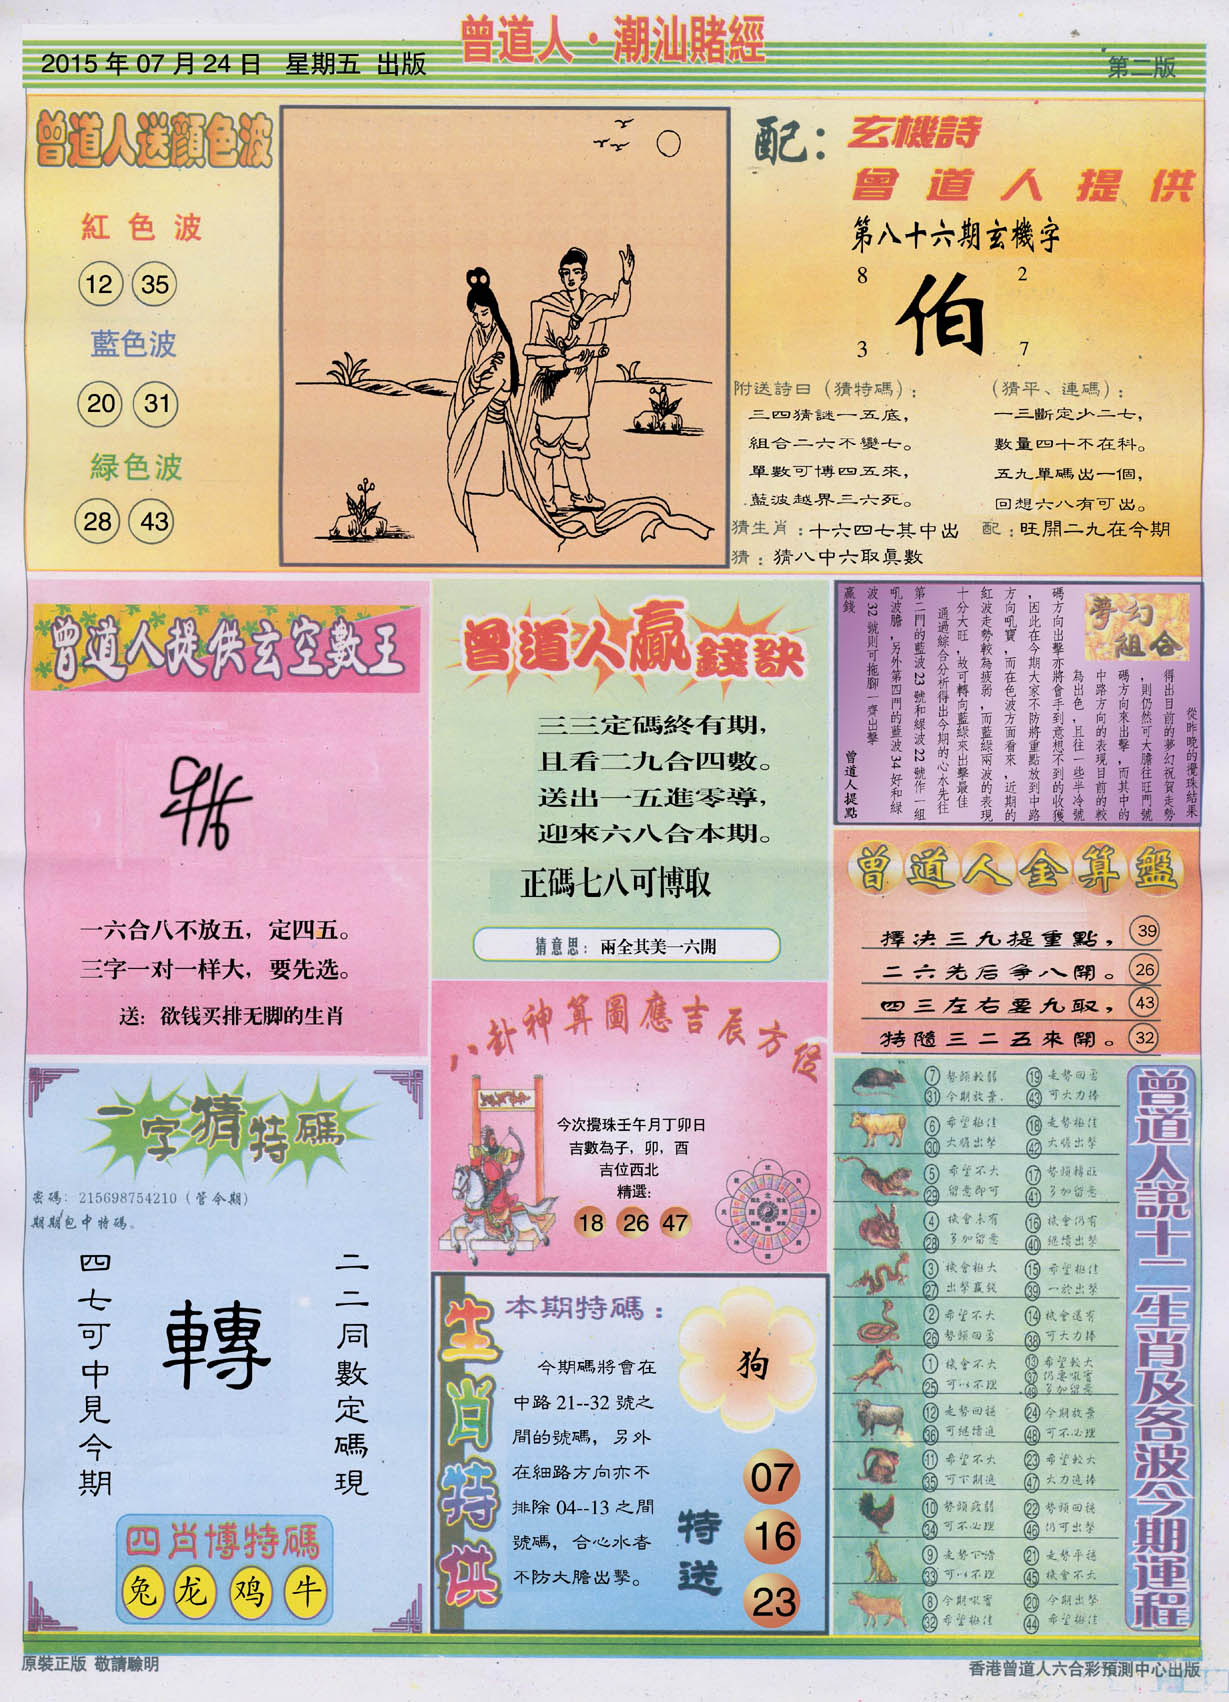 曾道人·潮汕賭經
2015年07月24日 星期五 出版
第二版
曾道人送顏色波
紅色波
12 35
藍色波
20 31
緑色波
28 43
配：
玄機詩
曾道人提供
第八十六期玄機字
8 2
伯
3 7
附送詩曰（猜特碼）：
三四猜謎一五底，
組合二六不變七。
單數可博四五來，
藍波越界三六死。
（猜平、連碼）：
一三斷定少二七，
數量四十不在科。
五九單碼出一個，
回想六八有可出。
猜生肖：十六四七其中出
配：旺開二九在今期
猜：猜八中六取眞數
曾道人提供玄空數王
一六合八不放五，定四五。
三字一对一样大，要先选。
送：欲钱买排无脚的生肖
曾道人贏錢訣
三三定碼終有期，
且看二九合四數。
送出一五進零導，
迎來六八合本期。
正碼七八可博取
猜意思：兩全其美一六開
夢幻
組合
從昨晚的攪珠結果
得出目前的夢幻祝賀走勢
，則仍然可大膽往旺門號
碼方向來出擊，而其中的
中路方向的表現目前的較
為出色，且往一些半冷號
碼方向出擊亦將會手到意想不到的收獲
，因此在今期大家不防將重點放到中路
方向吼寶，而在色波方面看來，近期的
紅波走勢較為疲弱，而藍綠兩波的表現
十分大旺，故可轉向藍綠來出擊最佳
通過綜合分析得出今期的心水先往
第二門的藍波23號和綠波22號作一組
吼波膽，另外第四門的藍波34好和綠
波32號則可拖腳一齊出擊
贏錢
曾道人提點
曾道人金算盤
擇決三九提重點， 39
二六先后爭八開。 26
四三左右要九取， 43
特隨三二五來開。 32
八卦神算圖應吉辰方位
今次攪珠壬午月丁卯日
吉數為子，卯，酉
吉位西北
精選:
18 26 47
一字猜特碼
密碼：215698754210（管令期）
期期包中特碼。
二二同數定碼現
轉
四七可中見今期
四肖博特碼
兔 龙 鸡 牛
生肖特供
本期特碼：
狗
今期碼將會在
中路21--32號之
間的號碼，另外
在細路方向亦不
排除04--13之間
號碼，合心水者
不防大膽出擊。
特送
07
16
23
曾道人説十二生肖及各波今期運程
7 勢頭較弱 19 走勢回勇
31 今期放棄. 43 可大力捧
6 希望極佳 18 走勢極佳
30 大膽出擊 42 大膽出擊
5 希望不大 17 勢頭轉旺
29 留意即可 41 多加留意
4 機會未有 16 機會仍有
28 多加留意 40 繼續出擊
3 機會極大 15 希望極佳
27 出擊贏錢 39 一於出擊
2 希望不大 14 機會還有
26 勢頭回勇 38 可大力捧
1 機會不大 13 希望較大
25 可以不理 37 仍要吸實
49 多加留意
12 走勢回穩 24 今期放棄
36 可繼續追 48 可不必理
11 希望不大 23 希望較大
35 可下期追 47 大力追捧
10 勢頭疲弱 22 勢頭回穩
34 可不必理 46 仍可出擊
9 走勢下滑 21 走勢平穩
33 可以不理 45 機會不大
8 今期吸實 20 今期出擊
32 希望極佳 44 希望極佳
原裝正版 敬請驗明
香港曾道人六合彩預測中心出版